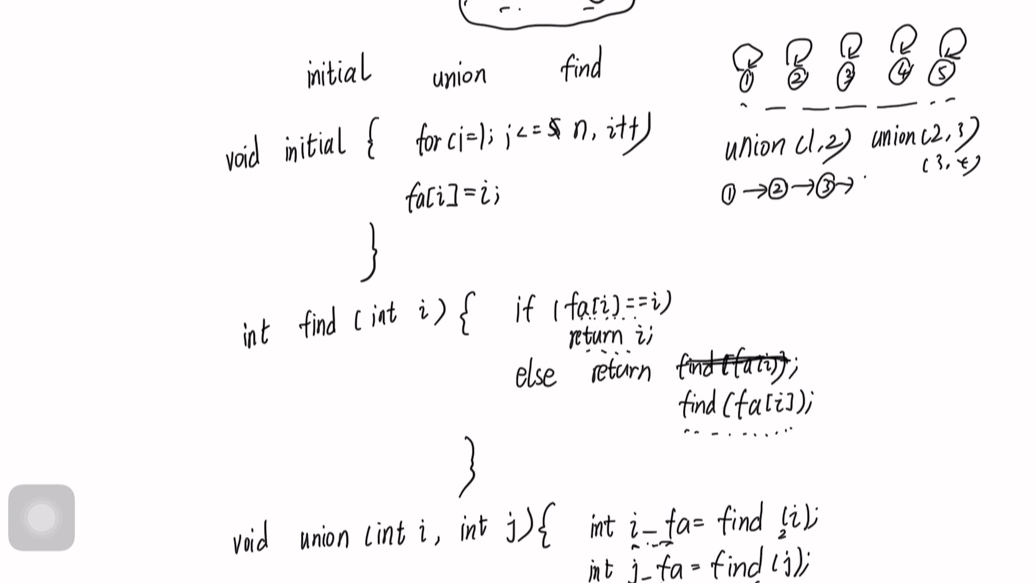 initial union find
① ② ③ ④ ⑤
void initial { for(i=1; i<= n, i++)
fa[i]=i;
}
union(1,2) union(2,3)
(3,4)
①→②→③→
int find (int i) { if (fa[i]==i)
return i;
else return find(fa[i]);
find(fa[i]);
}
void union (int i, int j){ int i_fa= find (i);
2
int j_fa= find(j);